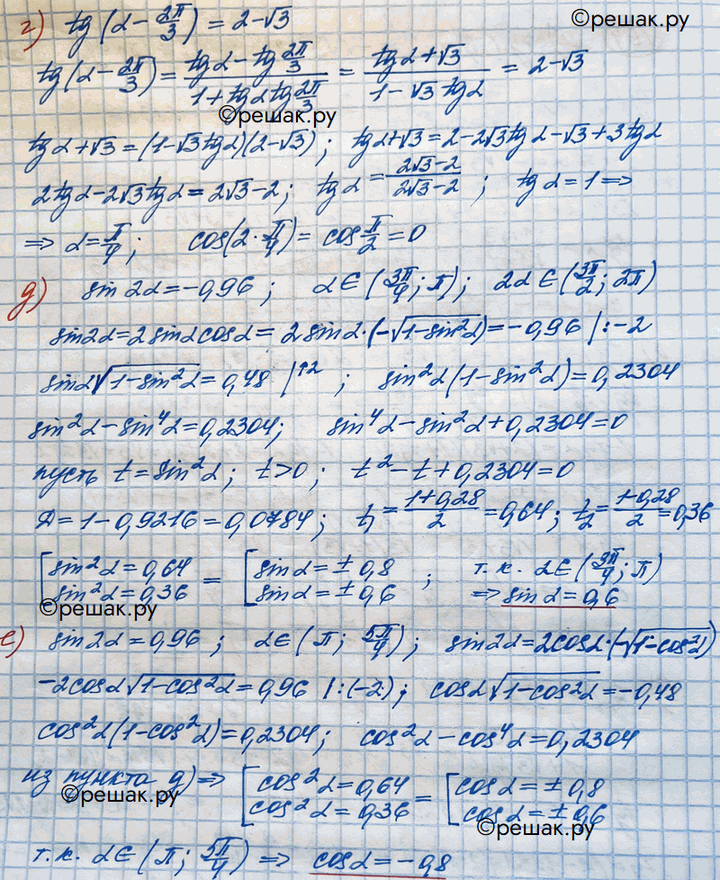 ©решак.ру
г) tg(α - 2π/3) = 2-√3
tg(α - 2π/3) = (tgα - tg 2π/3)/(1 + tgα tg 2π/3) = (tgα + √3)/(1 - √3 tgα) = 2-√3
©решак.ру
tgα+√3 = (1-√3tgα)(2-√3); tgα+√3 = 2-2√3tgα-√3+3tgα
2tgα-2√3tgα = 2√3-2; tgα = (2√3-2)/(2√3-2); tgα = 1 =>
=> α = π/4; cos(2·π/4) = cos π/2 = 0
д) sin2α = -0,96; α∈(3π/4; π); 2α∈(3π/2; 2π)
sin2α = 2sinαcosα = 2sinα·(-√(1-sin²α)) = -0,96 |:-2
sinα√(1-sin²α) = 0,48 |↑2; sin²α(1-sin²α) = 0,2304
sin²α - sin⁴α = 0,2304; sin⁴α - sin²α + 0,2304 = 0
пусть t = sin²α; t>0; t² - t + 0,2304 = 0
Д = 1 - 0,9216 = 0,0784; t₁ = (1+0,28)/2 = 0,64; t₂ = (1-0,28)/2 = 0,36
[sin²α = 0,64 = [sinα = ±0,8; т.к. α∈(3π/4; π)
sin²α = 0,36 sinα = ±0,6 => sinα = 0,6
©решак.ру
е) sin2α = 0,96; α∈(π; 5π/4); sin2α = 2cosα·(-√(1-cos²α))
-2cosα√(1-cos²α) = 0,96 |:(-2); cosα√(1-cos²α) = -0,48
cos²α(1-cos²α) = 0,2304; cos²α - cos⁴α = 0,2304
из пункта д) => [cos²α = 0,64 = [cosα = ±0,8
cos²α = 0,36 cosα = ±0,6
©решак.ру
©решак.ру
т.к. α∈(π; 5π/4) => cosα = -0,8